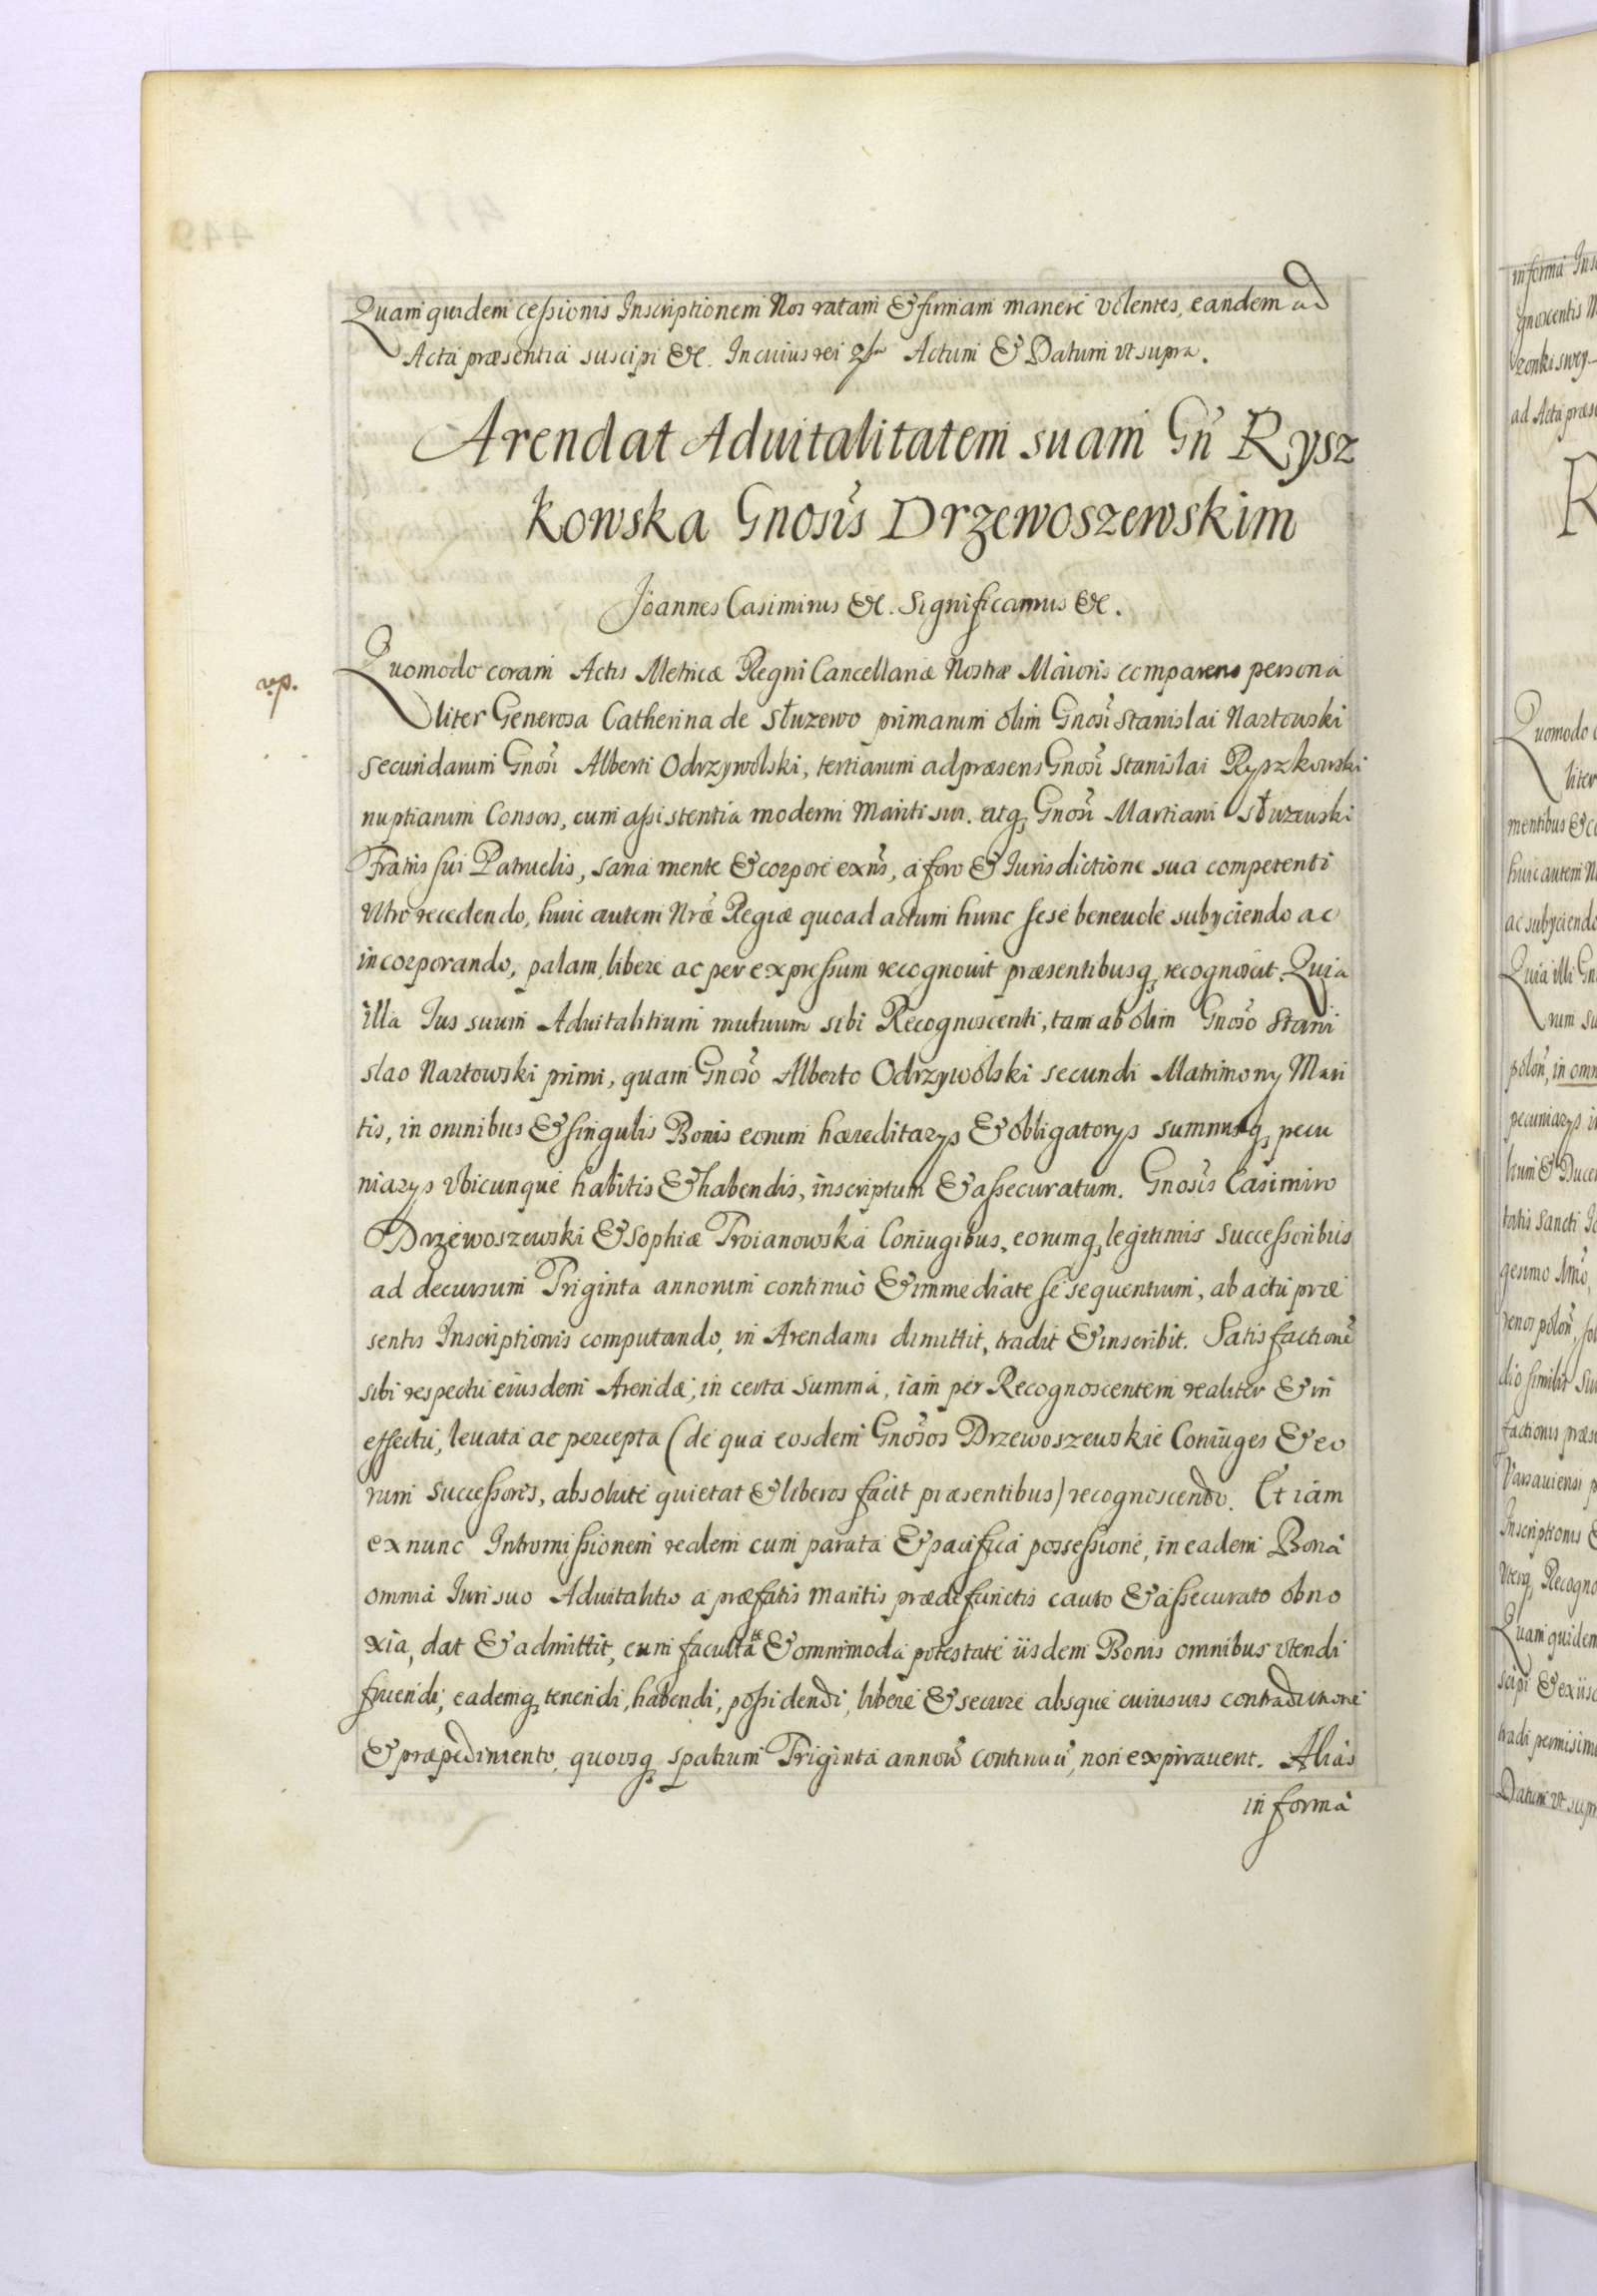 Quam quidem cessionis Inscriptionem Nos ratam & firmam manere volentes, eandem ad
Acta præsentia suscipi &c. In cuius rei Actum & Datum vt supra.
Arendat Aduitalitatem suam Gñ Rysz
kowska Gnosis Drzewoszewskim
Joannes Casimirus &c. Significamus &c.
Quomodo coram Actis Metricæ Regni Cancellariæ Nostræ Maioris comparens persona
rep.
liter Generosa Catherina de Służewo primarum olim Gnosi Stanislai Nartowski
secundarum Gnosi Alberti Odrzywolski, tertiarum ad præsens Gnosi Stanislai Ryszkowski
nuptiarum Consors, cum assistentia moderni Mariti sui. atq, Gnosi Martiani Służewski
Fratris sui Patruelis, sana mente & corpore exñs, a foro & Jurisdictione sua competenti
Vltro recedendo, huic autem Nræ Regiæ quoad actum hunc sese beneuole subyciendo ac
incorporando, palam, libere ac per expressum recognouit præsentibusq, recognoscit. Quia
illa Jus suum Aduitalitium mutuum sibi Recognoscenti, tam ab olim Gnoso Stani
slao Nartowski primi, quam Gnoso Alberto Odrzywolski secundi Matrimony Mari
tis, in omnibus & singulis Bonis eorum hæreditarys & obligatorys summisq, pecu
niarys vbicunque habitis & habendis, inscriptum & assecuratum. Gnosis Casimiro
Drzewoszewski & Sophiæ Troianowska Coniugibus, eorumq, legitimis successoribus
ad decursum Triginta annorum continuo & immediate se sequentium, ab actu præ
sentis Inscriptionis computando, in Arendam dimittit, tradit & inscribit. Satisfactione
sibi respectu eiusdem Arendæ, in certa summa, iam per Recognoscentem realiter & in
effectu, leuata ac percepta (de qua eosdem Gnosos Drzewoszewskie Coniuges & eo
rum successores, absolute quietat & liberos facit præsentibus) recognoscendo. Et iam
ex nunc Intromissionem realem cum parata & pacifica possessione, in eadem Bona
omnia Juri suo Aduitalitio a præfatis maritis prædefunctis cauto & assecurato obno
xia, dat & admittit, cum facultate & omnimoda potestate iisdem Bonis omnibus vtendi
fruendi, eademq, tenendi, habendi, possidendi, libere & secure absque cuiusuis contradictione
& præpedimento, quousq, spatium Triginta annorũ continuũ, non expirauerit. Alias
in forma